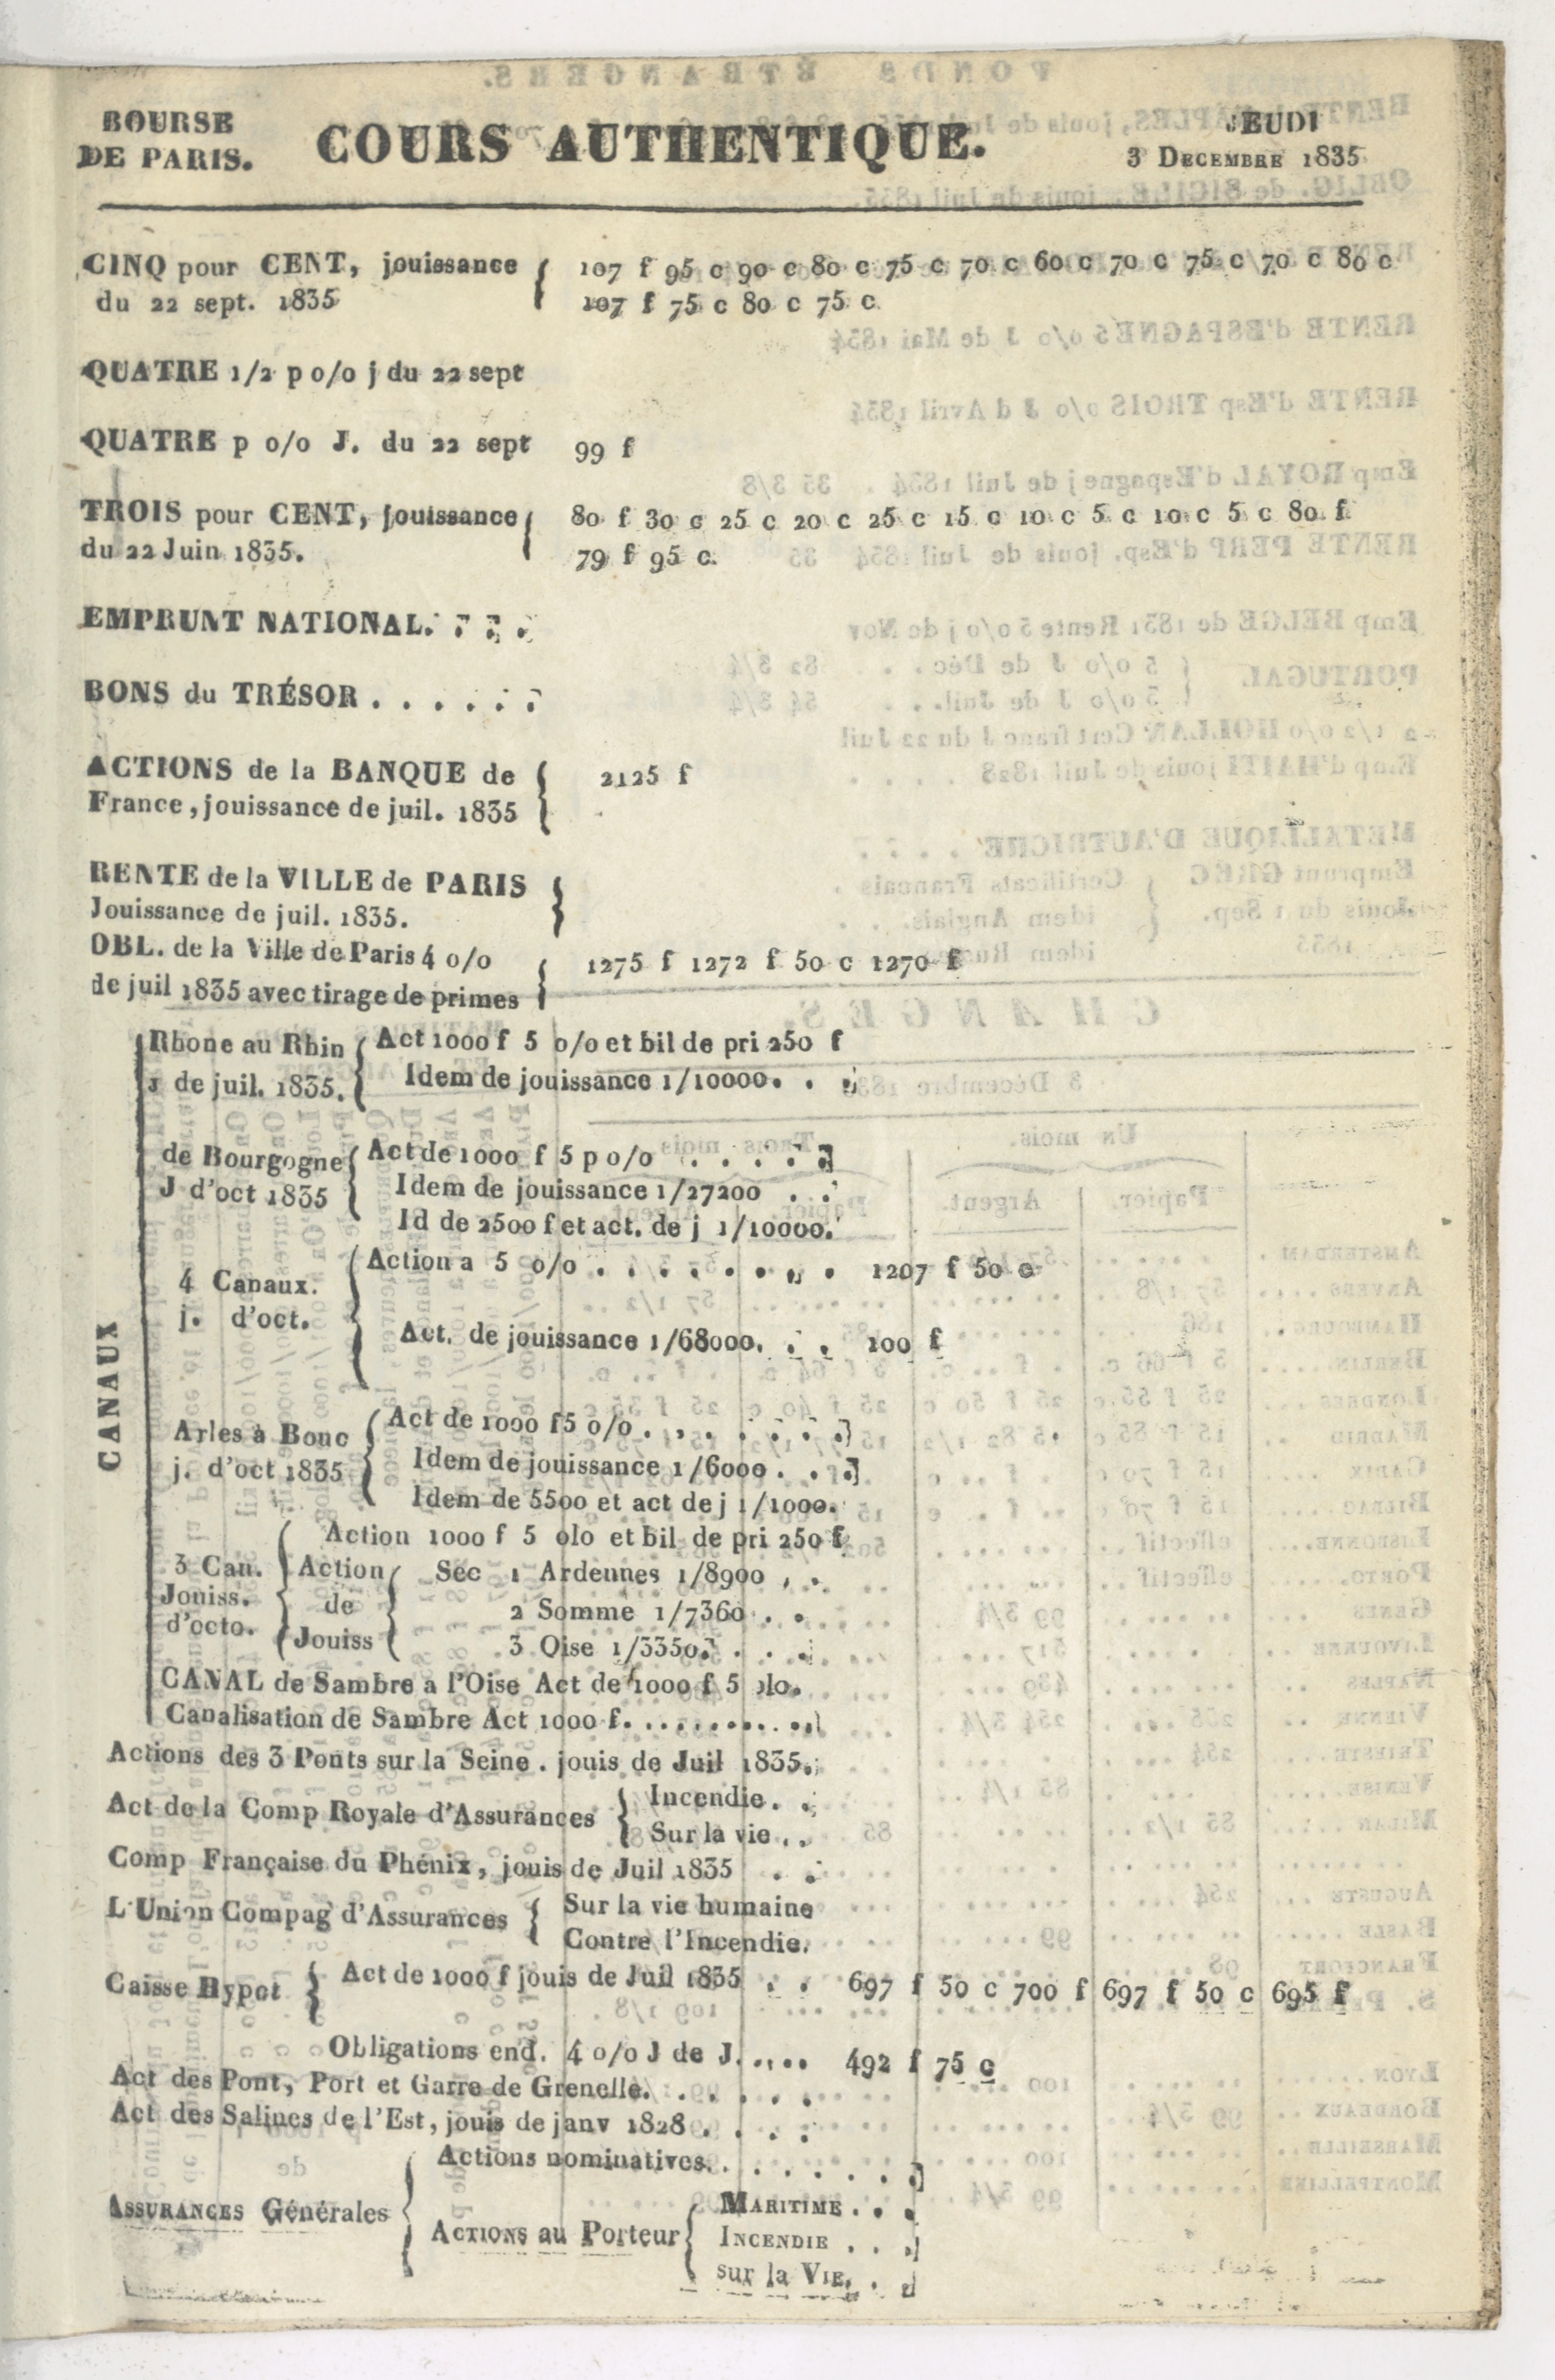 BOURSE
DE PARIS.
COURS AUTHENTIQUE.
JEUDI
3 DECEMBRE 1835
CINQ pour CENT, jouissance { 107 f 95 c 90 c 80 c 75 c 70 c 60 c 70 c 75 c 70 c 80 c
du 22 sept. 1835 107 f 75 c 80 c 75 c
QUATRE 1/2 p o/o j du 22 sept
QUATRE p o/o J. du 22 sept 99 f
TROIS pour CENT, jouissance { 80 f 30 c 25 c 20 c 25 c 15 c 10 c 5 c 10 c 5 c 80 f
du 22 Juin 1835. 79 f 95 c
EMPRUNT NATIONAL. . . .
BONS du TRÉSOR . . . . . .
ACTIONS de la BANQUE de { 2125 f
France, jouissance de juil. 1835
RENTE de la VILLE de PARIS {
Jouissance de juil. 1835.
OBL. de la Ville de Paris 4 o/o { 1275 f 1272 f 50 c 1270 f
de juil 1835 avec tirage de primes
CANAUX
Rhone au Rhin { Act 1000 f 5 o/o et bil de pri 250 f
J de juil. 1835. Idem de jouissance 1/10000. . .
de Bourgogne { Act de 1000 f 5 p o/o . . . . .
J d'oct 1835 Idem de jouissance 1/27200 . .
Id de 2500 f et act. de j 1/10000.
4 Canaux. { Action a 5 o/o . . . . . . . . 1207 f 50 c
j. d'oct. Act. de jouissance 1/68000. . . 100 f
Arles à Bouc { Act de 1000 f 5 o/o . . . . . . .
j. d'oct 1835 Idem de jouissance 1/6000 . . .
Idem de 5500 et act de j 1/1000.
Action 1000 f 5 olo et bil de pri 250 f
3 Can. { Action { Sec 1 Ardennes 1/8900 , .
Jouiss. de 2 Somme 1/7360 . .
d'octo. Jouiss 3 Oise 1/3350. . . .
CANAL de Sambre a l'Oise Act de 1000 f 5 olo.
Canalisation de Sambre Act 1000 f. . . . . . . . . .
Actions des 3 Ponts sur la Seine . jouis de Juil 1835.
Act de la Comp Royale d'Assurances { Incendie. .
Sur la vie . .
Comp Française du Phénix, jouis de Juil 1835 . .
L'Union Compag d'Assurances { Sur la vie humaine
Contre l'Incendie.
Caisse Hypot { Act de 1000 f jouis de Juil 1835 . . 697 f 50 c 700 f 697 f 50 c 695 f
Obligations end. 4 o/o J de J. . . . . 492 f 75 c
Act des Pont, Port et Garre de Grenelle. . . . . .
Act des Salines de l'Est, jouis de janv 1828 . . . .
Actions nominatives. . . . . . .
ASSURANCES Générales { ACTIONS au Porteur { MARITIME . . .
INCENDIE . . .
sur la VIE. . .